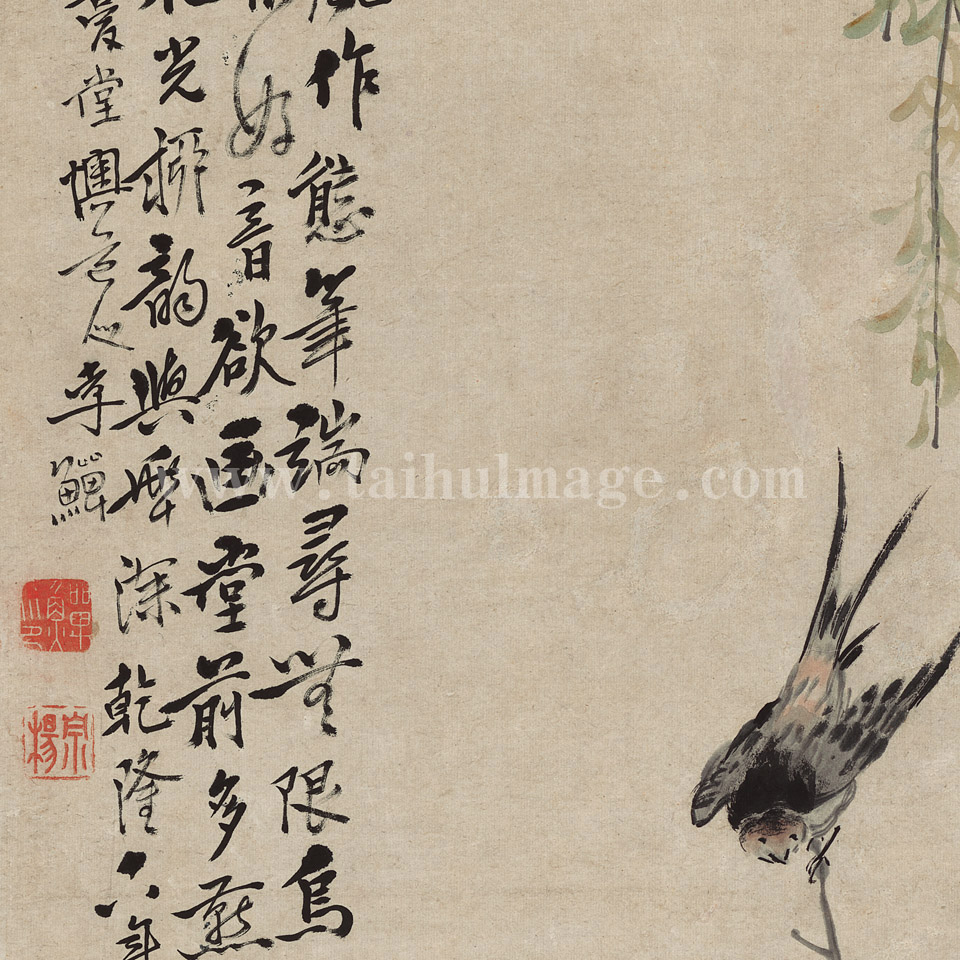 作態筆端尋無限鳥
好音欲画堂前多燕
光韵與深乾隆六年
堂懊道人李鱓
宗楊
www.taihuImage.com